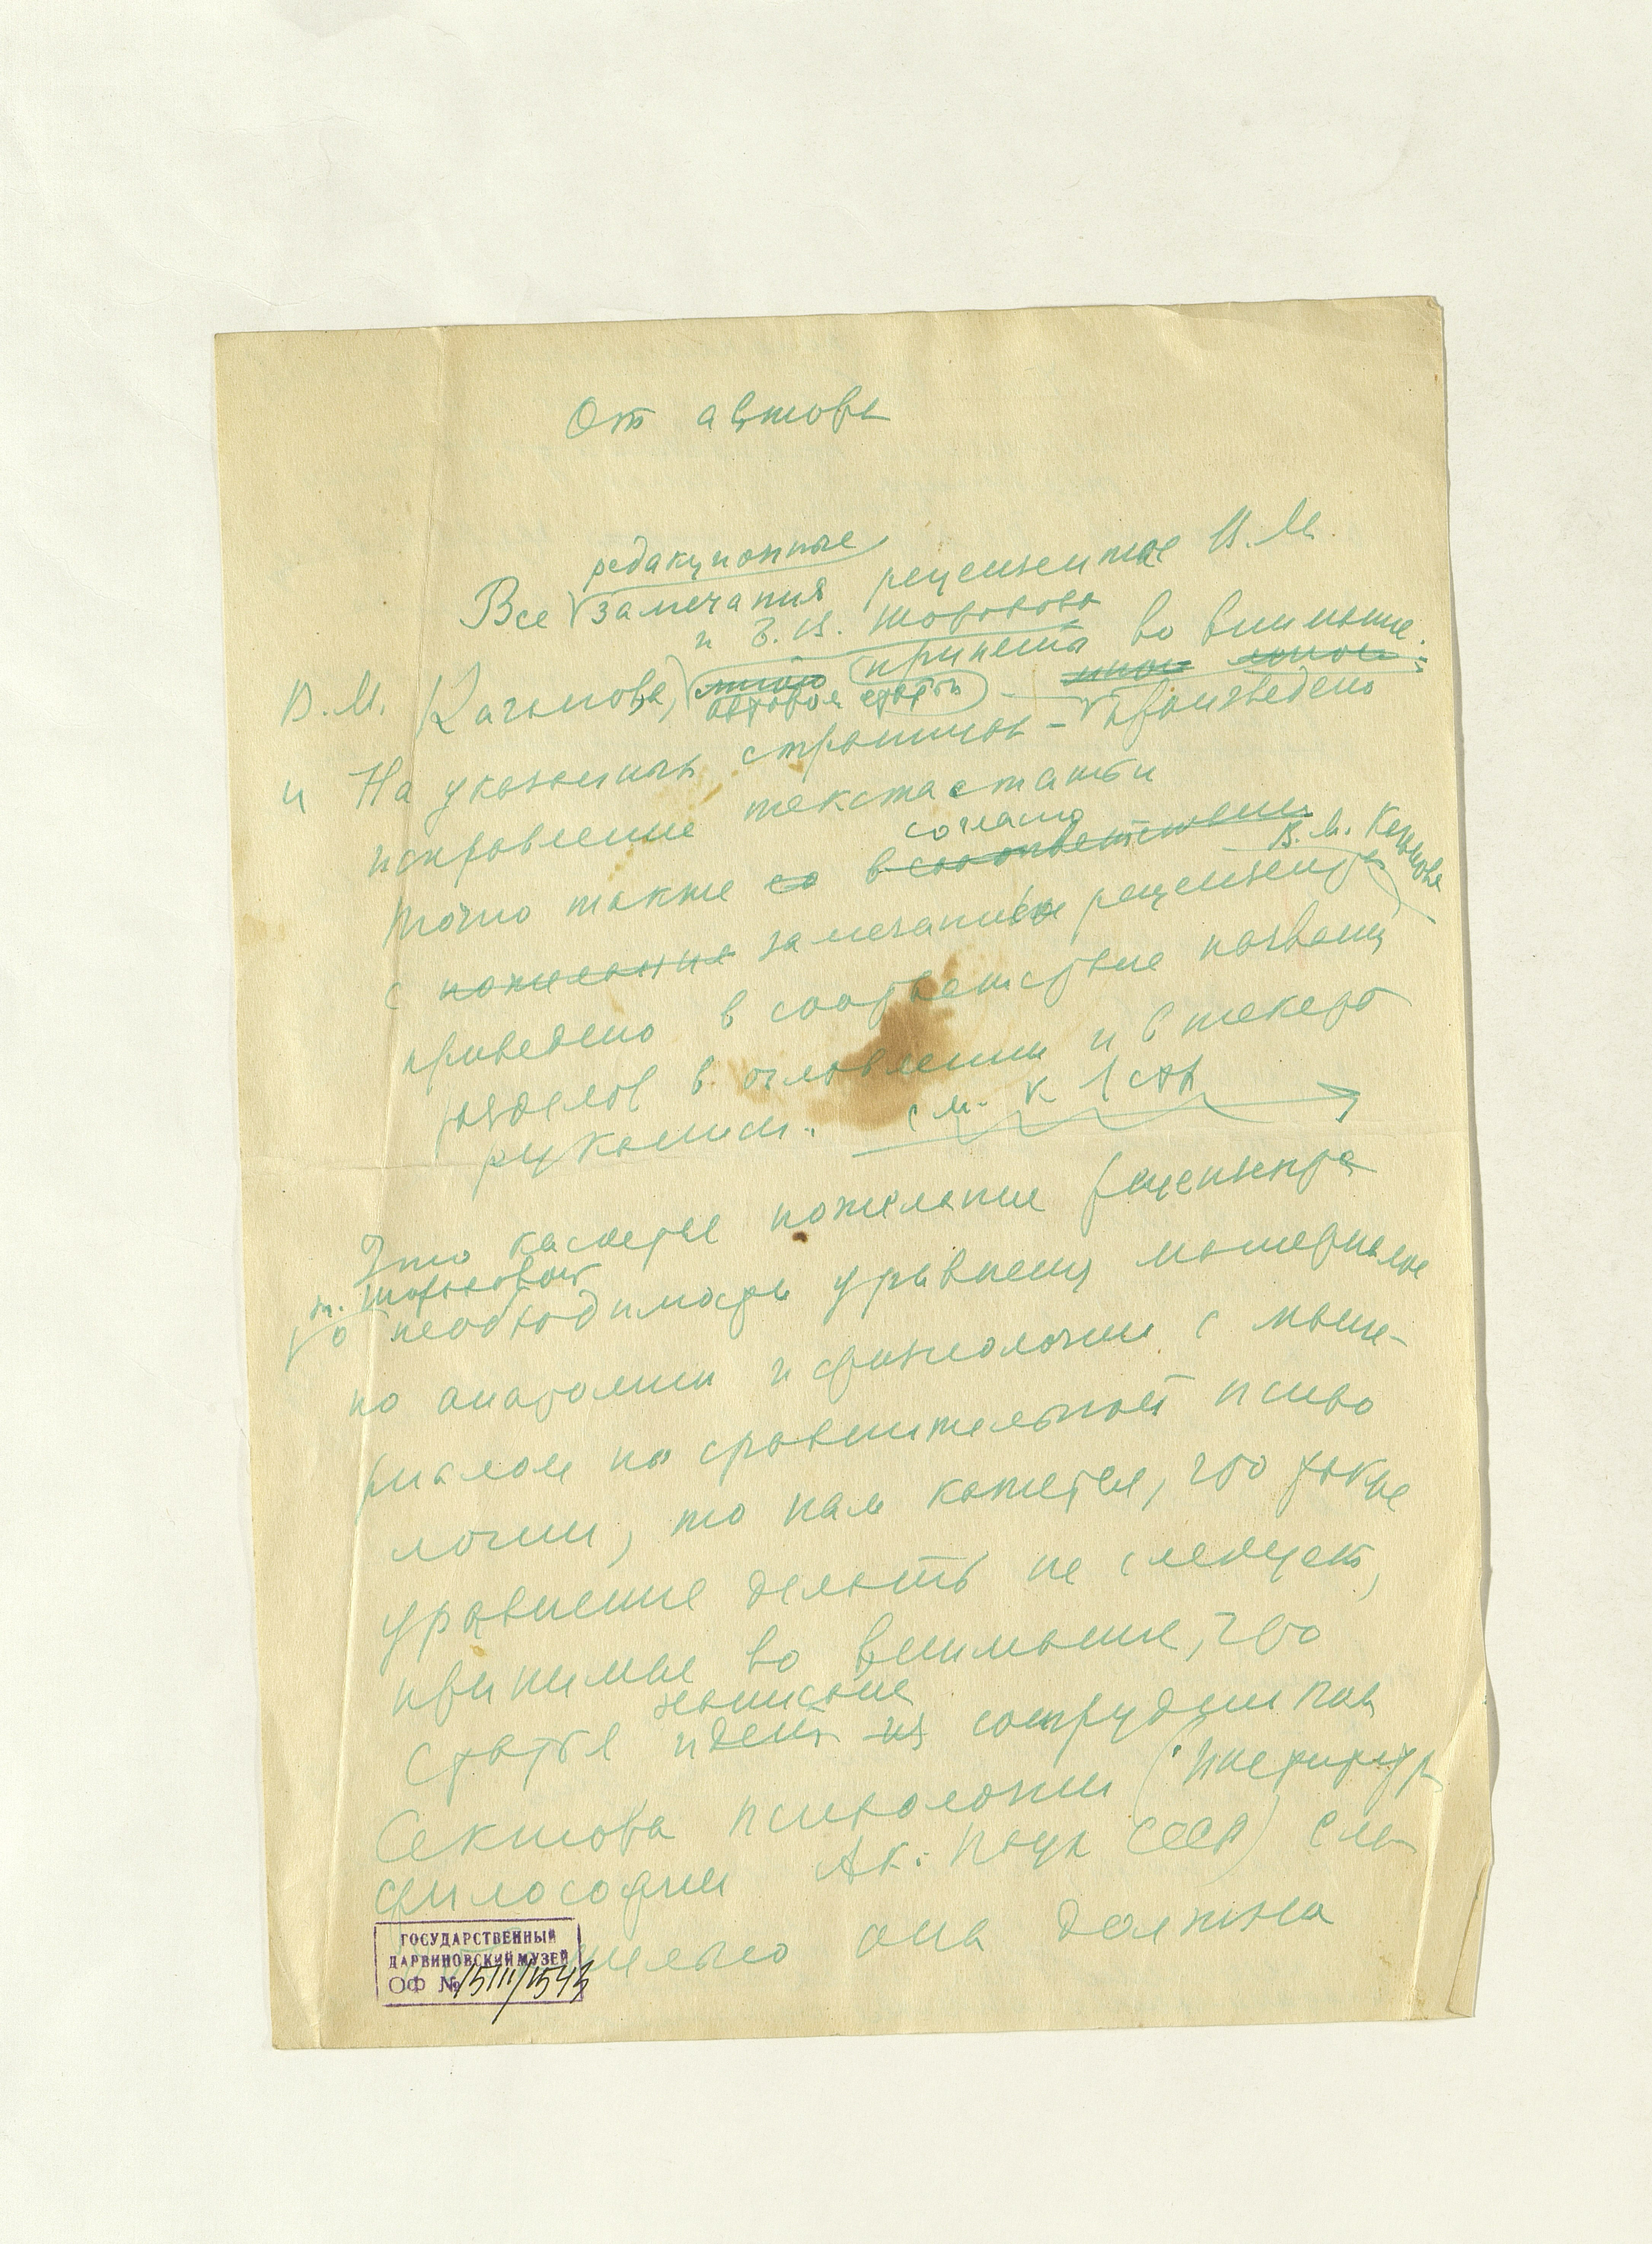 От автора
редакционные
Все замечания рецензентов В. М.
и Е. В. Шорохова
В. М. Каганова, мною приняты во внимание.
автором статьи
и На указанных страницах – произведено
исправление текста статьи
согласно
Точно также со в соответствии
В. М. Каганова
с пожелание замечанием рецензента
приведено в соответствие названия
разделов в оглавлении и в тексте
рукописи. см. к 1 стр
Что касается пожелания рецензента
т. Шороховой
о необходимости уравнения материалов
по анатомии и физиологии с мате-
риалом по сравнительной психо
логии, то нам кажется, что такое
уравнение делать не следует,
принимая во внимание, что
написана
Статья идет из сотрудником
Сектора психологии (Института
философии Ак. Наук СССР) сле-
она должна
ГОСУДАРСТВЕННЫЙ
ДАРВИНОВСКИЙ МУЗЕЙ
ОФ № 15111/1543